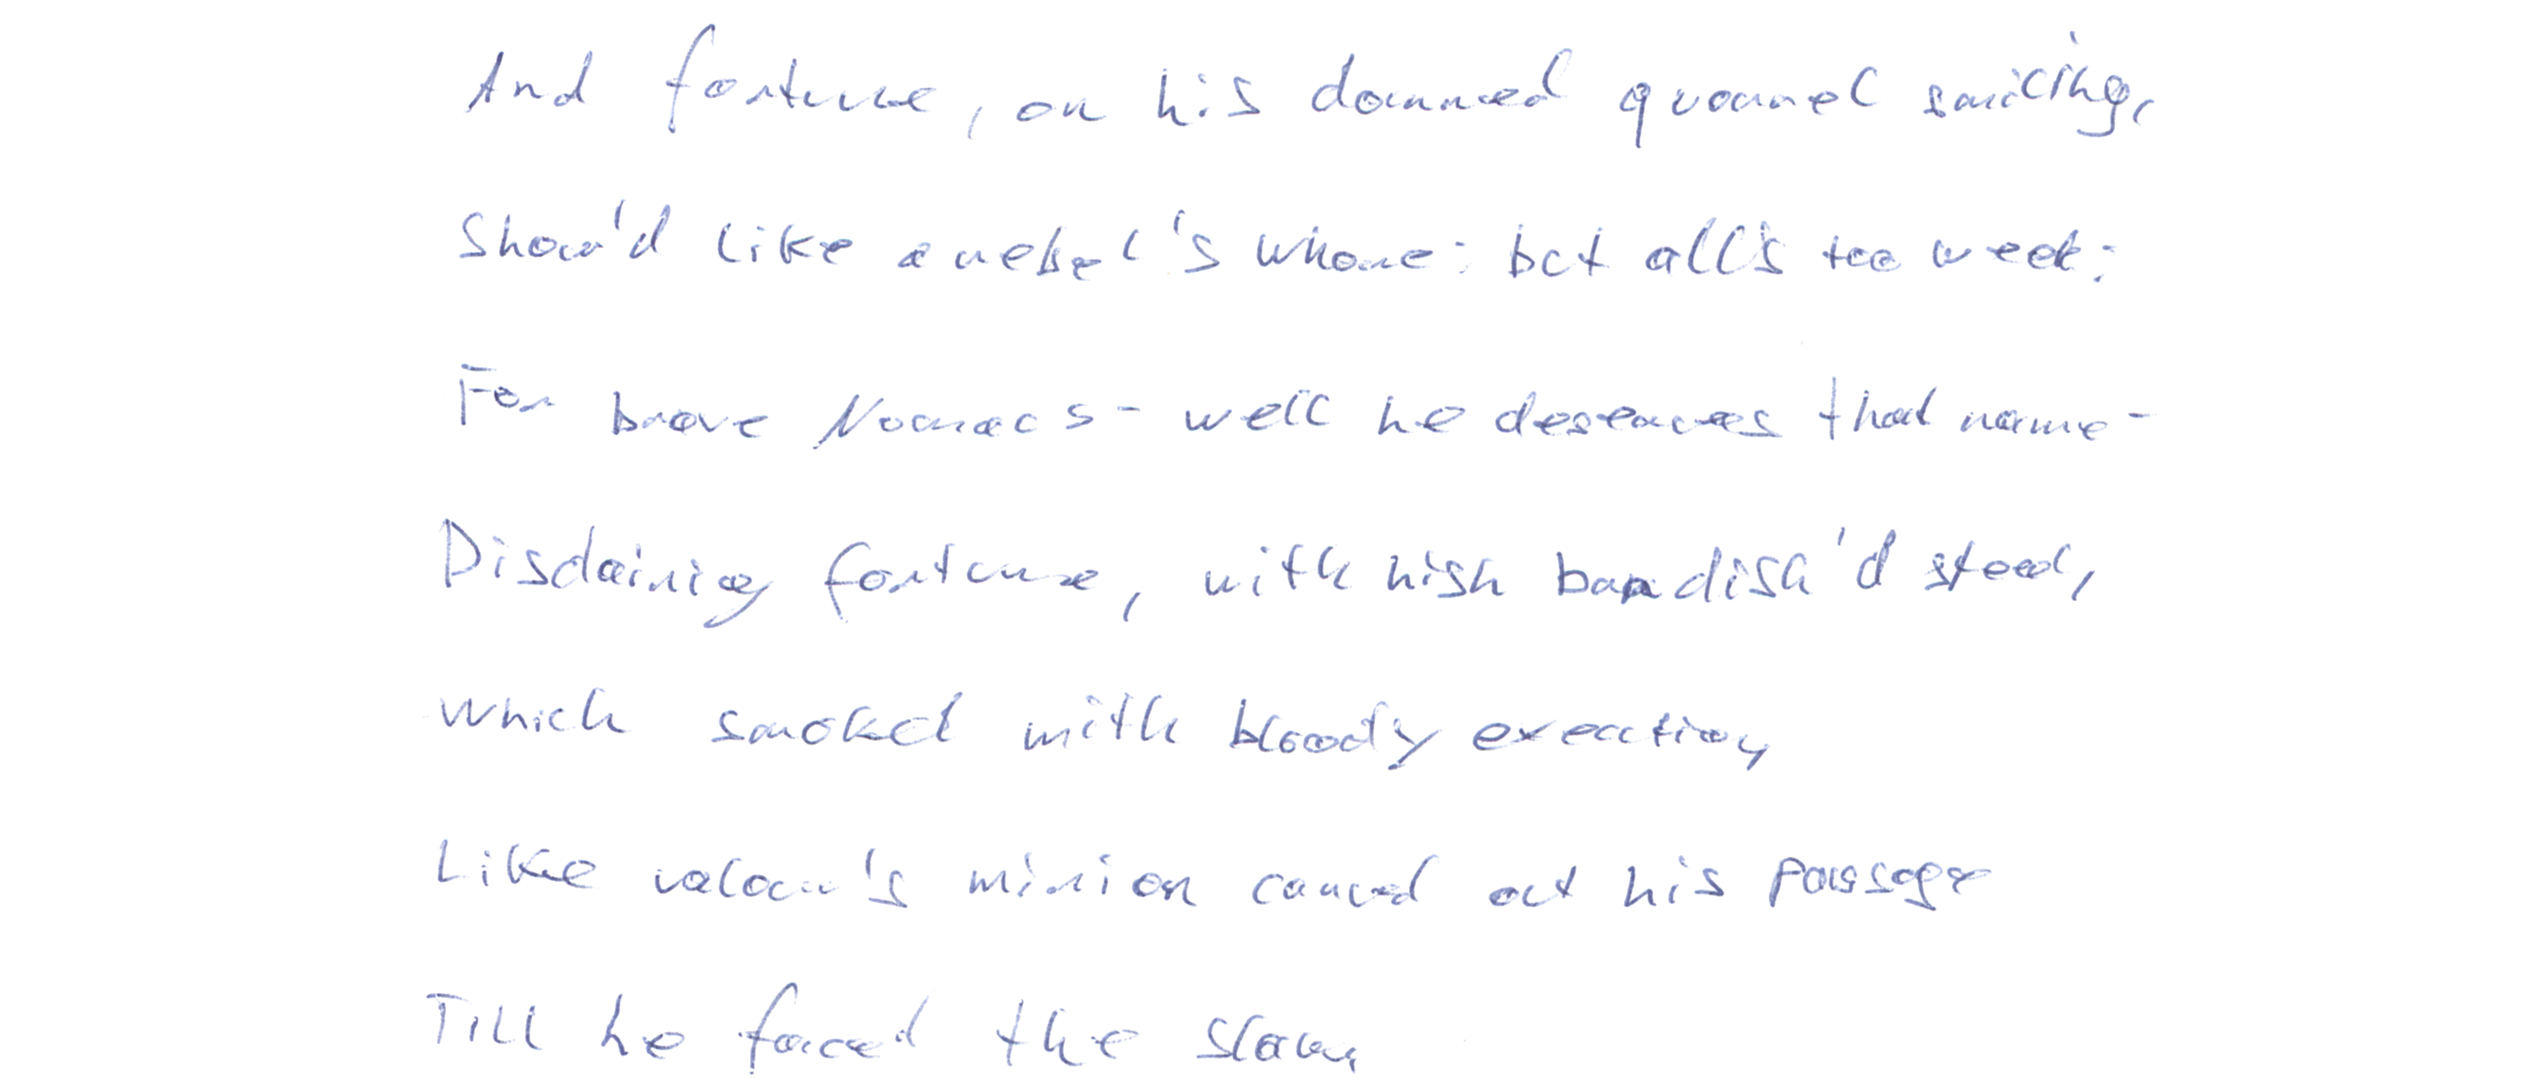 And fortune, on his damned quarrel smiling,
Show'd like a rebel's whore: but all's too weak:
For brave Nomacs - well he deserves that name -
Disdaining fortune, with hish bandish'd steel,
Which smoked with bloody execution,
Like valour's minion carved out his passage
Till he faced the slave,